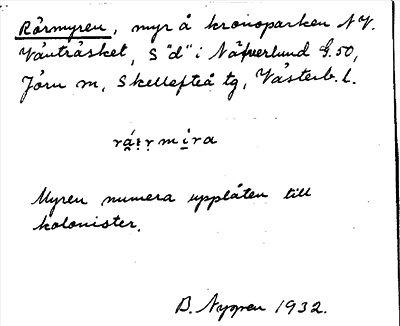 Rörmyren, myr å kronoparken NV.
Vänträsket, S "d" i Näfverlund G.50,
Jörn sn, Skellefteå tg, Västerb. l.
Myren numera upplåten till
kolonister.
B. Nygren 1932.